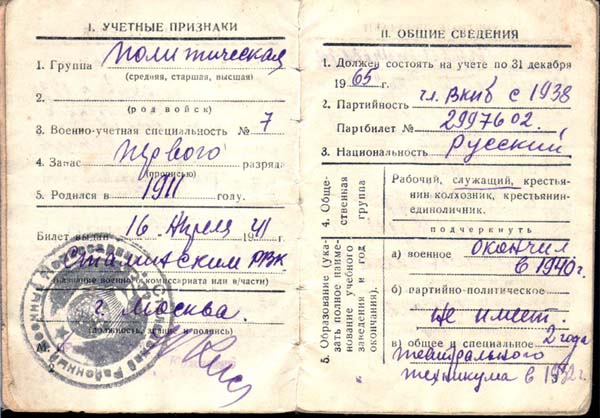 I. УЧЕТНЫЕ ПРИЗНАКИ
1. Группа политическая
(средняя, старшая, высшая)
2.
(род войск)
3. Военно-учетная специальность № 7
4. Запас первого разряда
(прописью)
5. Родился в 1911 году.
Билет выдан 16 Апреля 1941 г.
Сталинским РВК
(название военного комиссариата или в/части)
г. Москва.
(должность, звание и подпись)
II. ОБЩИЕ СВЕДЕНИЯ
1. Должен состоять на учете по 31 декабря
1965 г.
2. Партийность чл. ВКПб с 1938
Партбилет № 2997602.
3. Национальность Русский
4. Общественная группа
Рабочий, служащий, крестья-
нин колхозник, крестьянин-
единоличник.
подчеркнуть
5. Образование (ука-
зать полное наиме-
нование учебного
заведения и год
окончания).
а) военное окончил
в 1940 г.
б) партийно-политическое
не имеет.
в) общее и специальное 2 года
театрального
техникума в 1932 г.